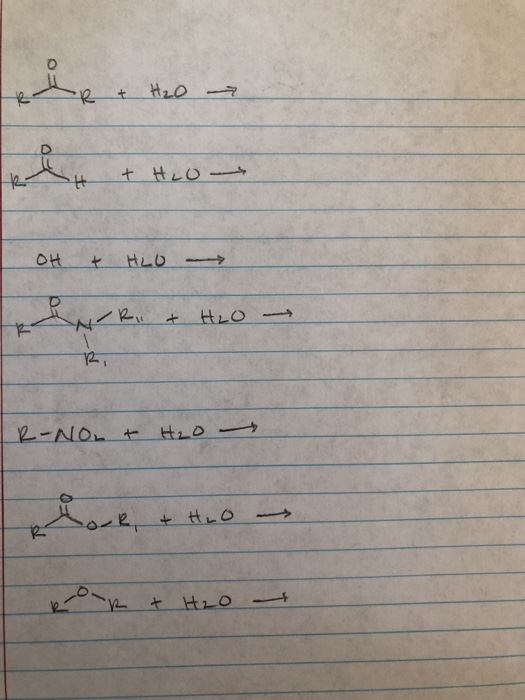 O
R R + H2O →
O
R H + H2O →
OH + H2O →
O
R N-R11 + H2O →
R1
R-NO2 + H2O →
O
R O-R1 + H2O →
R O R + H2O →